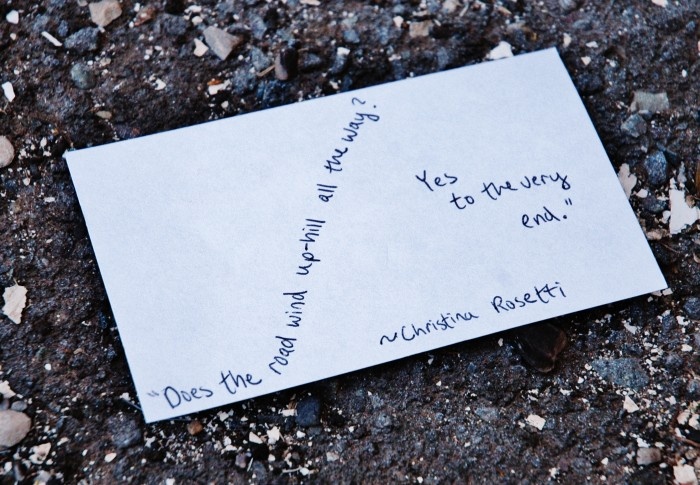 "Does the road wind up-hill all the way?
Yes
to the very
end."
~Christina Rosetti